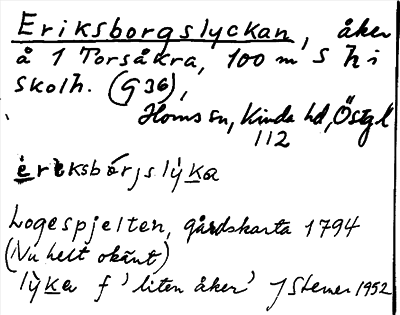 Eriksborgslyckan, åker
å 1 Torsåkra, 100 m S h i
skolh. (G 36),
Horns sn, Kinda hd, Östgl
112
èriksbórjslỳka
Logespjelten, gårdskarta 1794
(Nu helt okänt)
lỳka f 'liten åker' J Stener 1952